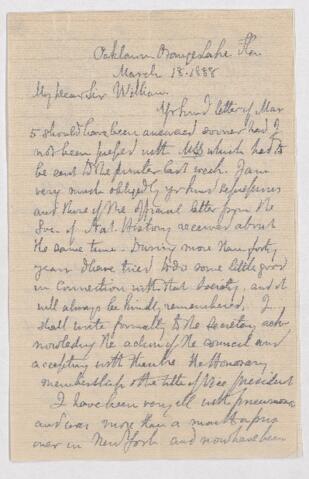 Oaklawn Orange Lake Fla
March 18. 1888
My Dear Sir William.
Yr kind letter of Mar
5 should have been answered sooner had I
not been pressed with MSS which had to
be sent to the printer last week. I am
very much obliged by yr kind expressions
and those of the official letter from the
Soc. of Nat. History received about
the same time. During more than forty
years I have tried to do some little good
in connection with that Society, and it
will always be kindly remembered. I
shall write formally to the Secretary ack-
nowledging the action of the council and
accepting with thanks the Honorary
membership & the title of Vice president
I have been very ill with pneumonia
and was more than a month
over in New York and now have been